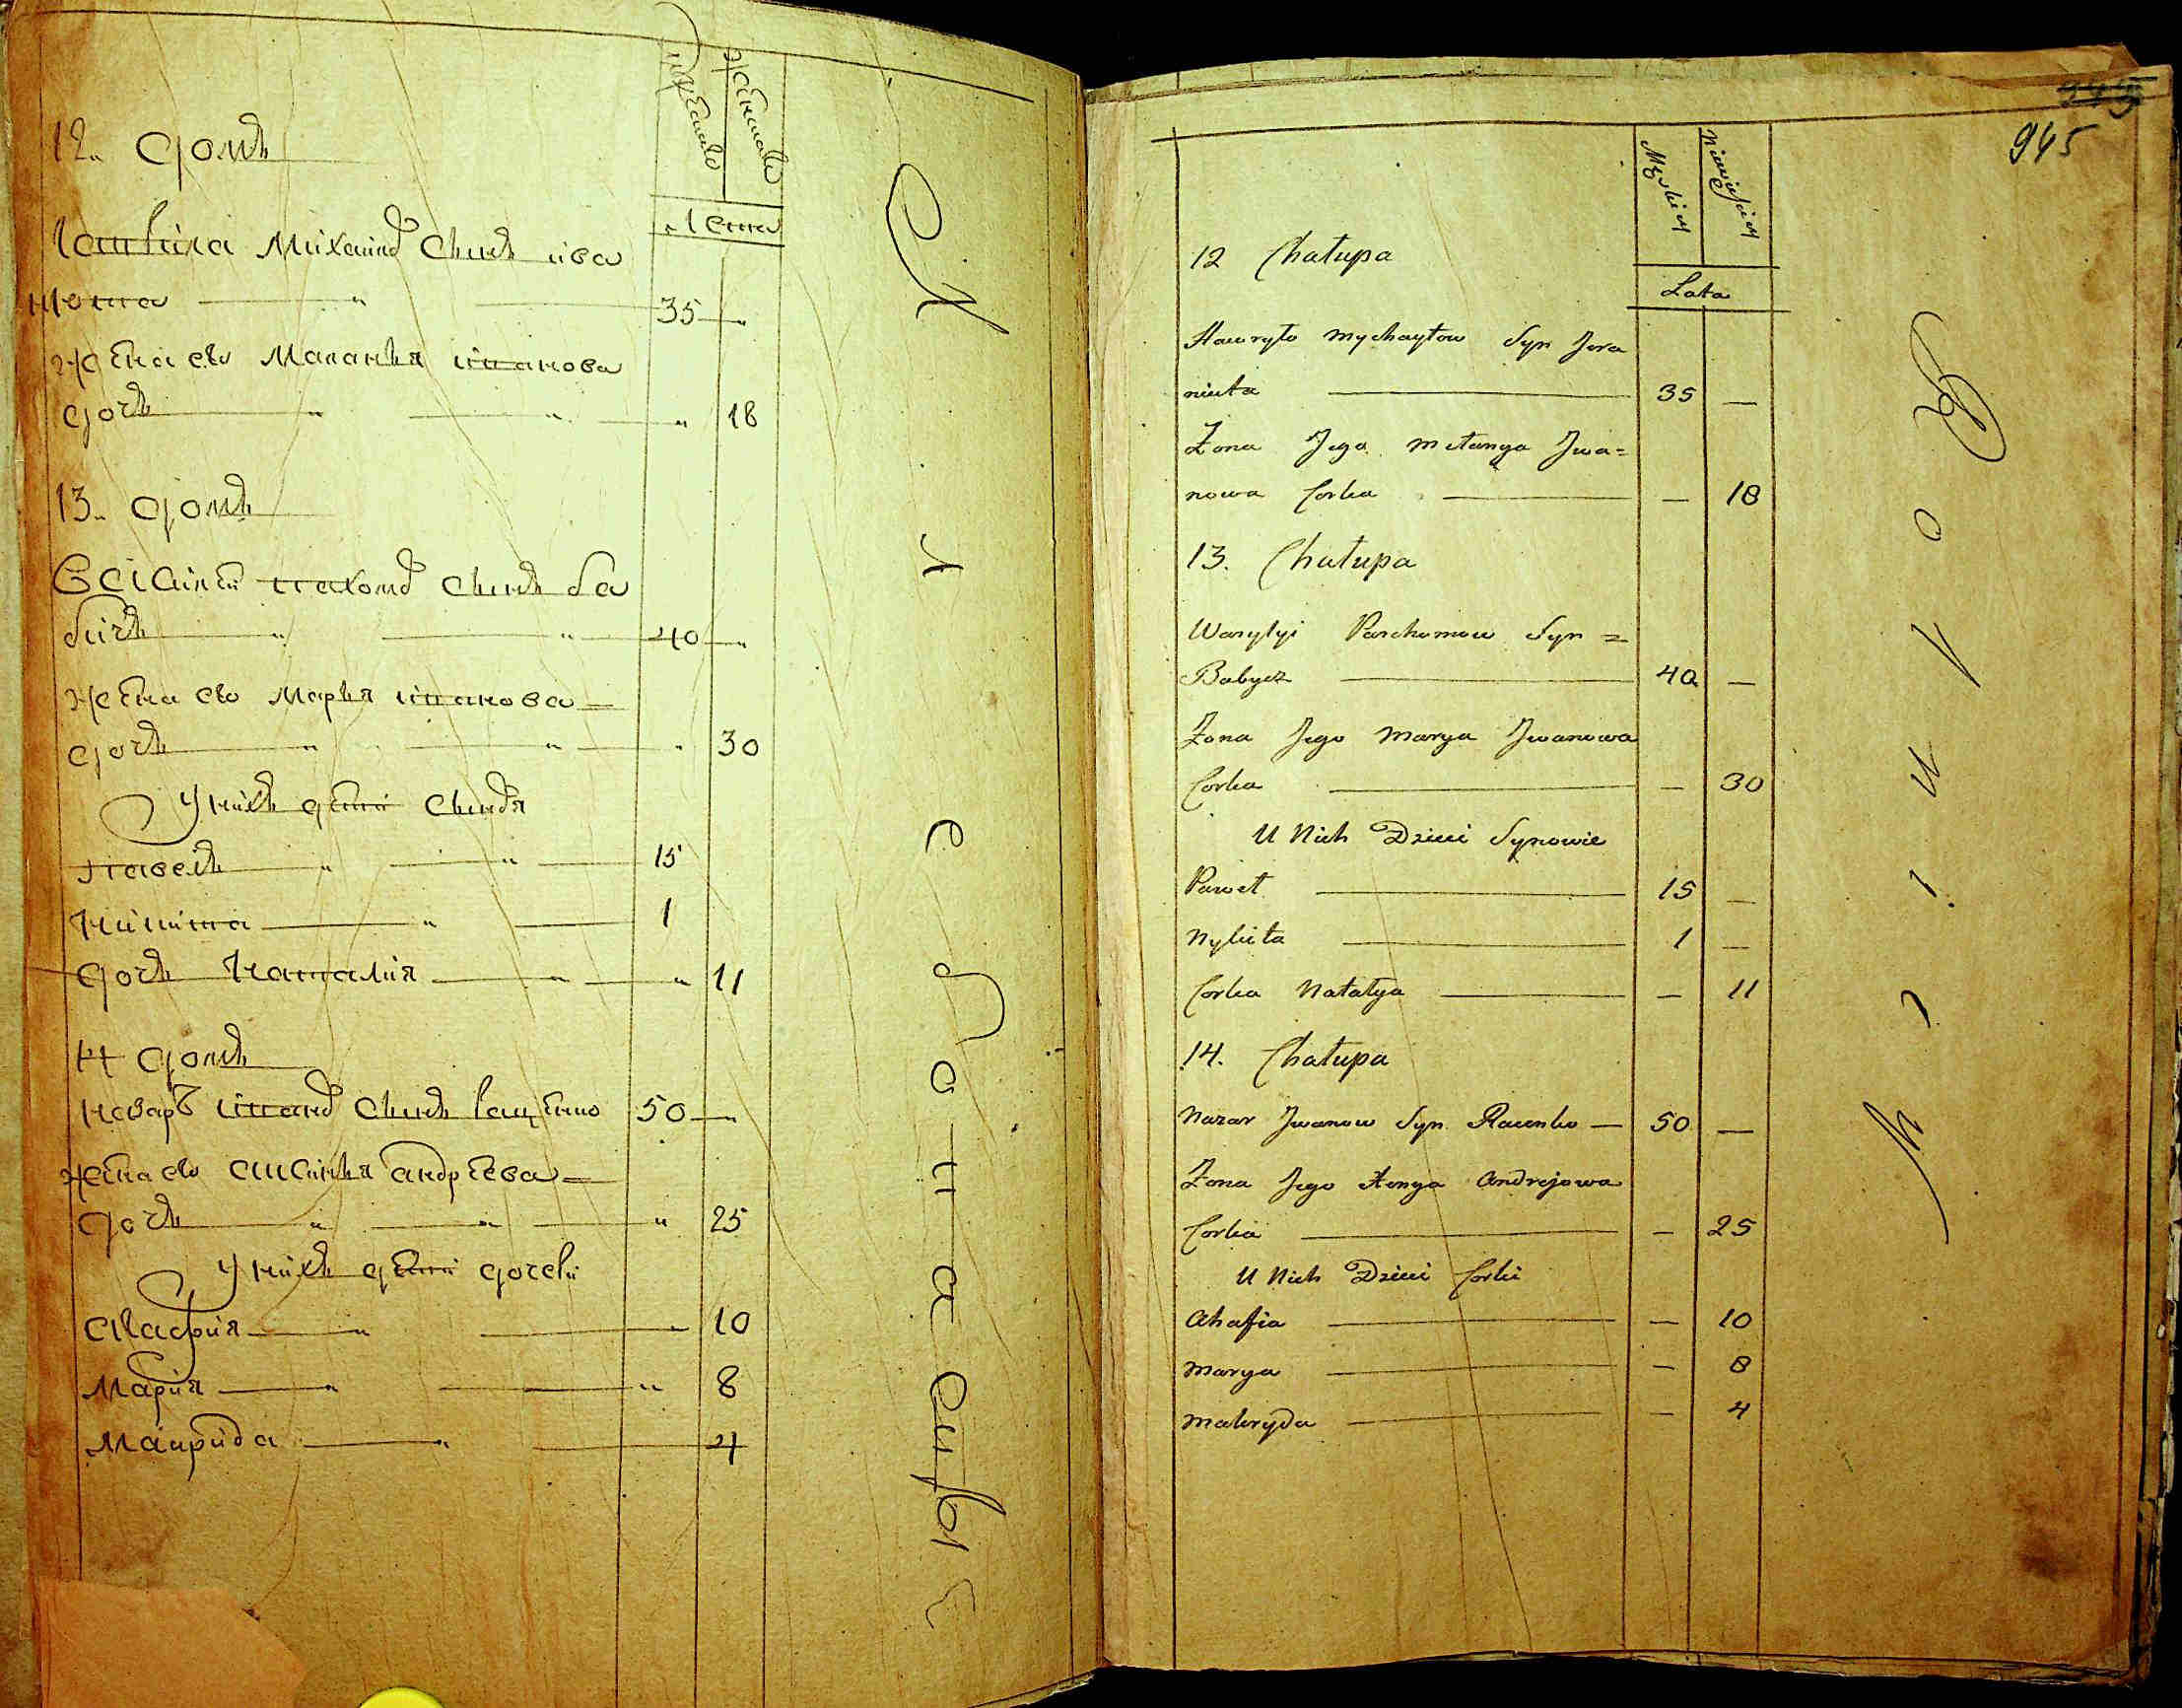 12. домъ
Лета
Гаврила Михаилов сынъ ива
нюта " 35 "
Жена его Маланья иванова
дочь " " " 18
13. домъ
Василей пахомов сынъ ба
бичь " " 40 "
Жена его Марья иванова
дочь " " " 30
У нихъ дети сыновя
Павелъ " " 15
Никита " 1
дочь Наталия " " 11
14 домъ
Назаръ иванов сынъ раценко 50 "
жена его андреева
дочь " " " 25
У нихъ дети дочери
Агафия " " 10
Мария " " 8
Макрида " 4
945
Męskiey
Niewieściey
Lata
12 Chałupa
Hawryło Mychayłow Syn Jwa
niuta 35 —
Żona Jego Mełanya Jwa=
nowa Corka — 18
13. Chałupa
Wasylyi Parchomow Syn =
Babycz 40 —
Żona Jego Marya Jwanowa
Corka — 30
U Nich Dzieci Synowie
Paweł 15 —
Nykita 1 —
Corka Natalya — 11
14. Chałupa
Nazar Jwanow Syn Racenko — 50 —
Żona Jego Andrejowa
Corka — 25
U Nich Dzieci Corki
Ahafia — 10
Marya — 8
Makryda — 4